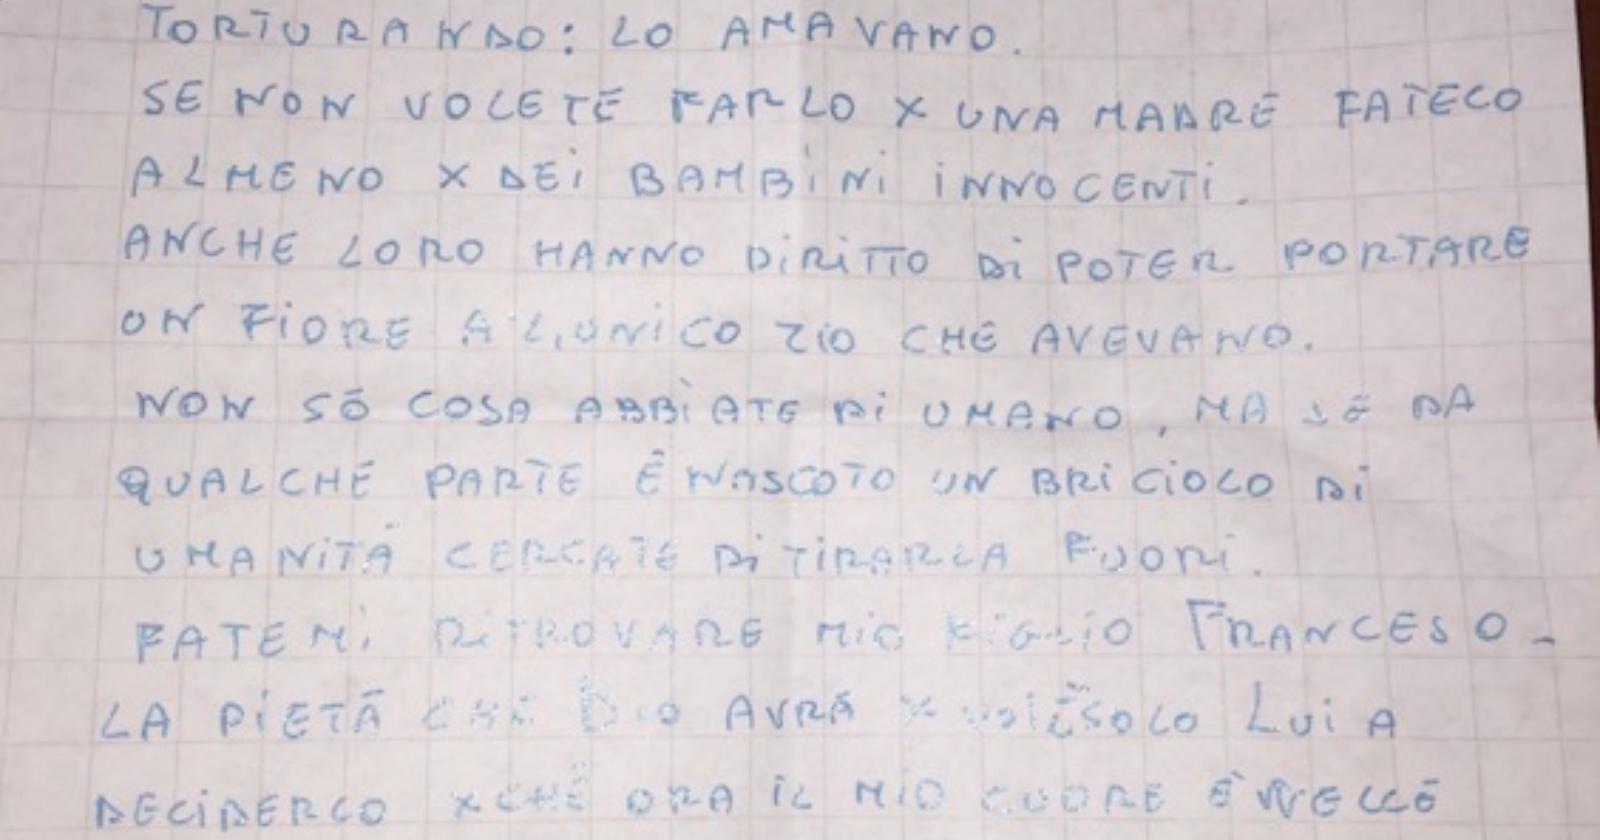 TORTURANDO: LO AMAVANO.
SE NON VOLETE FARLO X UNA MADRE FATELO
ALMENO X DEI BAMBINI INNOCENTI.
ANCHE LORO HANNO DIRITTO DI POTER PORTARE
UN FIORE A L,UNICO ZIO CHE AVEVANO.
NON SÓ COSA ABBIATE DI UMANO, MA SE DA
QUALCHE PARTE È NASCOTO UN BRICIOLO DI
UMANITÀ CERCATE DI TIRARLA FUORI.
FATEMI RITROVARE MIO FIGLIO FRANCESO-
LA PIETÀ CHE DIO AVRÀ X VOI È SOLO LUI A
DECIDERLO XCHÈ ORA IL MIO CUORE È NELLE